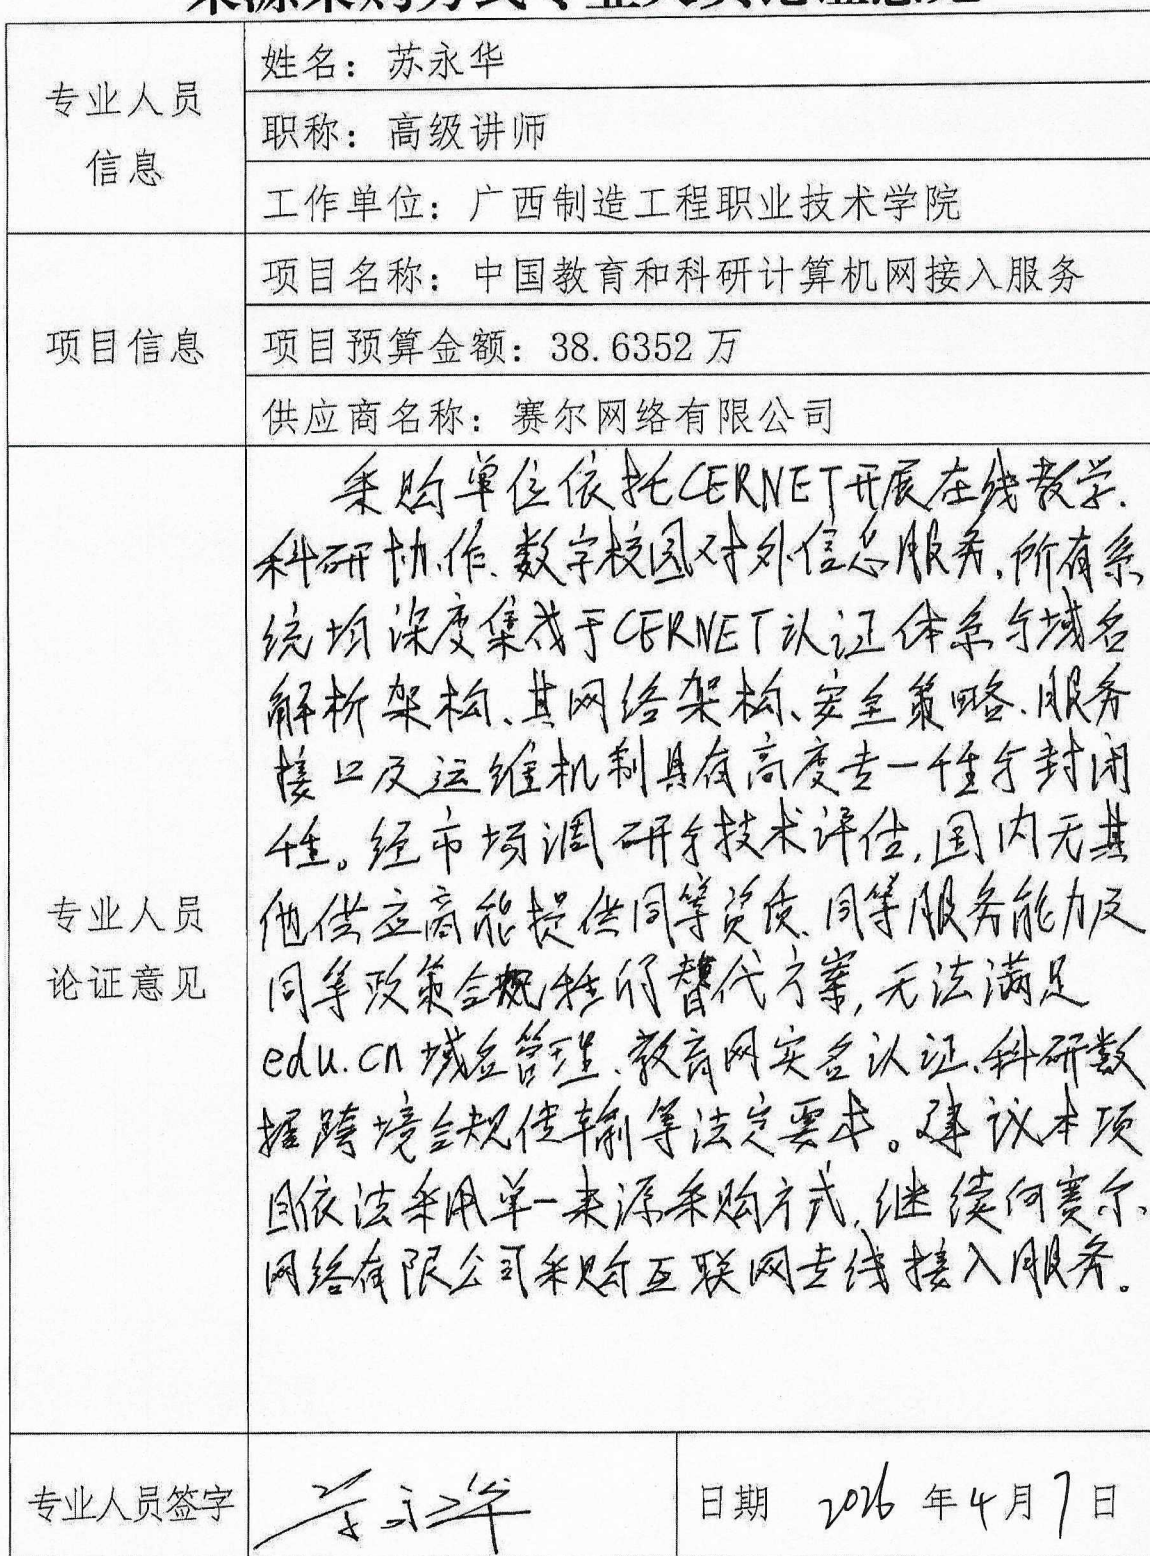 来源采购方式专业人员论证意见
专业人员
信息
姓名：苏永华
职称：高级讲师
工作单位：广西制造工程职业技术学院
项目信息
项目名称：中国教育和科研计算机网接入服务
项目预算金额：38.6352万
供应商名称：赛尔网络有限公司
专业人员
论证意见
采购单位依托CERNET开展在线教学、
科研协作、数字校园对外信息服务，所有系
统均深度集成于CERNET认证体系与域名
解析架构、其网络架构、安全策略、服务
接口及运维机制具有高度专一性与封闭
性。经市场调研与技术评估，国内无其
他供应商能提供同等资质、同等服务能力及
同等政策合规性的替代方案，无法满足
edu.cn域名管理、教育网实名认证、科研数
据跨境合规传输等法定要求。建议本项
目依法采用单一来源采购方式，继续向赛尔
网络有限公司采购互联网专线接入服务。
专业人员签字
苏永华
日期 2026年4月7日